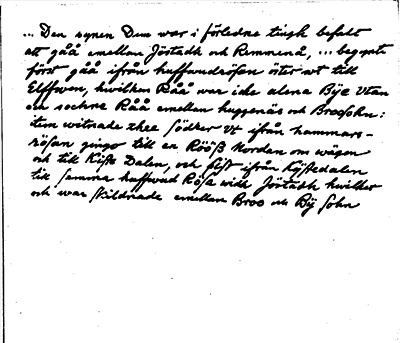 ... Den synen Dem war i förledne tingh befalt
att gåå emellan Jöstadh och Remmenå, ... begynte
först gåå ifrån huffwudrösen öster ut till
Elffwen, hwilken Råå war icke alena Bÿe Utan
en sochne Råå emellan huggenäs och Broosohn:
item witnade thee Södher Ut ifrån hammars-
rösan gingo till en Rööß Norden om wägen
och till Kiste Dalen, och sist ifrån Kÿstedalen
till samma huffwud Röse widh Jöstadh hwilket
och war skildnade emellan Broo och Bÿ Sohn